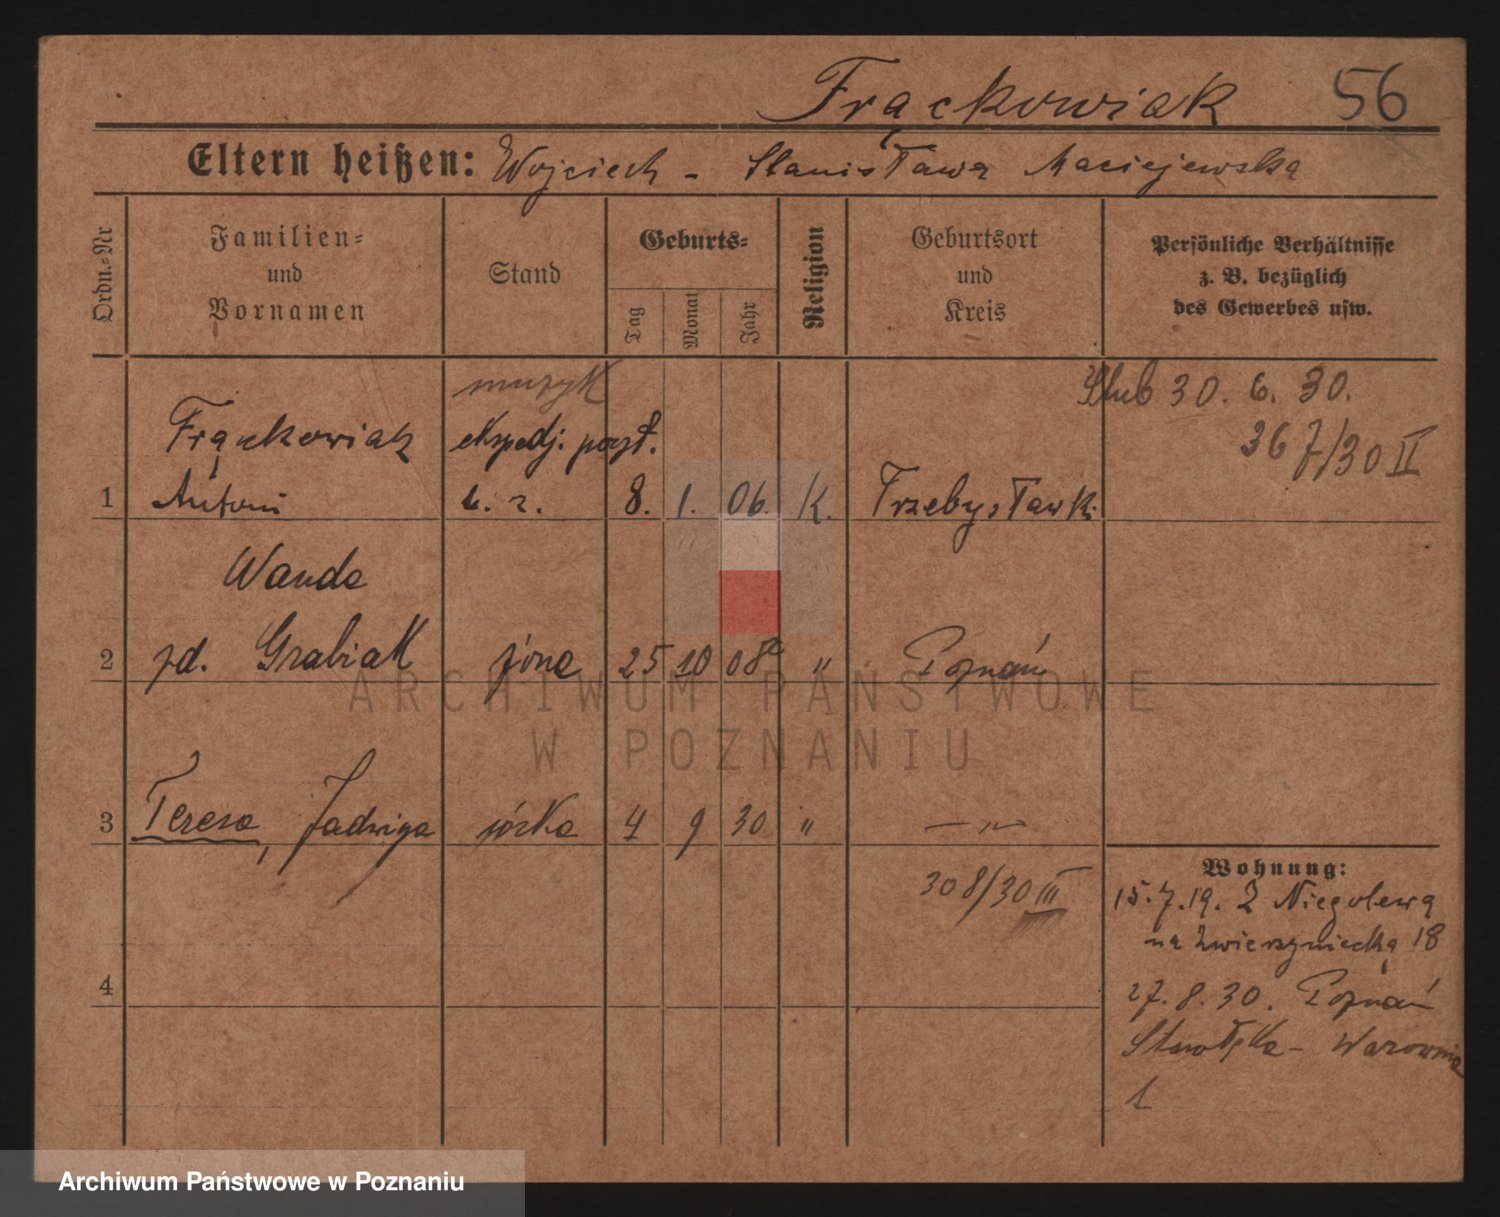 Frąckowiak 56
Eltern heißen: Wojciech - Stanisława Maciejewska
Ordn.-Nr
Familien-
und
Vornamen
Stand
Geburts-
Tag
Monat
Jahr
Religion
Geburtsort
und
Kreis
Persönliche Verhältnisse
z. B. bezüglich
des Gewerbes usw.
muzyk
Ślub 30. 6. 30.
367/30 II
Frąckowiak ekspedj. poczt.
1 Antoni 8. 1. 06. K. Trzebysławki
Wanda
2 zd. Grabiak żona 25 10 08 " Poznań
3 Teresa, Jadwiga córka 4 9 30 " — " —
308/30 III
4
Wohnung:
15.7.19. Z Niegolewa
na Zwierzyniecką 18
27. 8. 30. Poznań
Starołęka - Warownia
1
ARCHIWUM PAŃSTWOWE
W POZNANIU
Archiwum Państwowe w Poznaniu